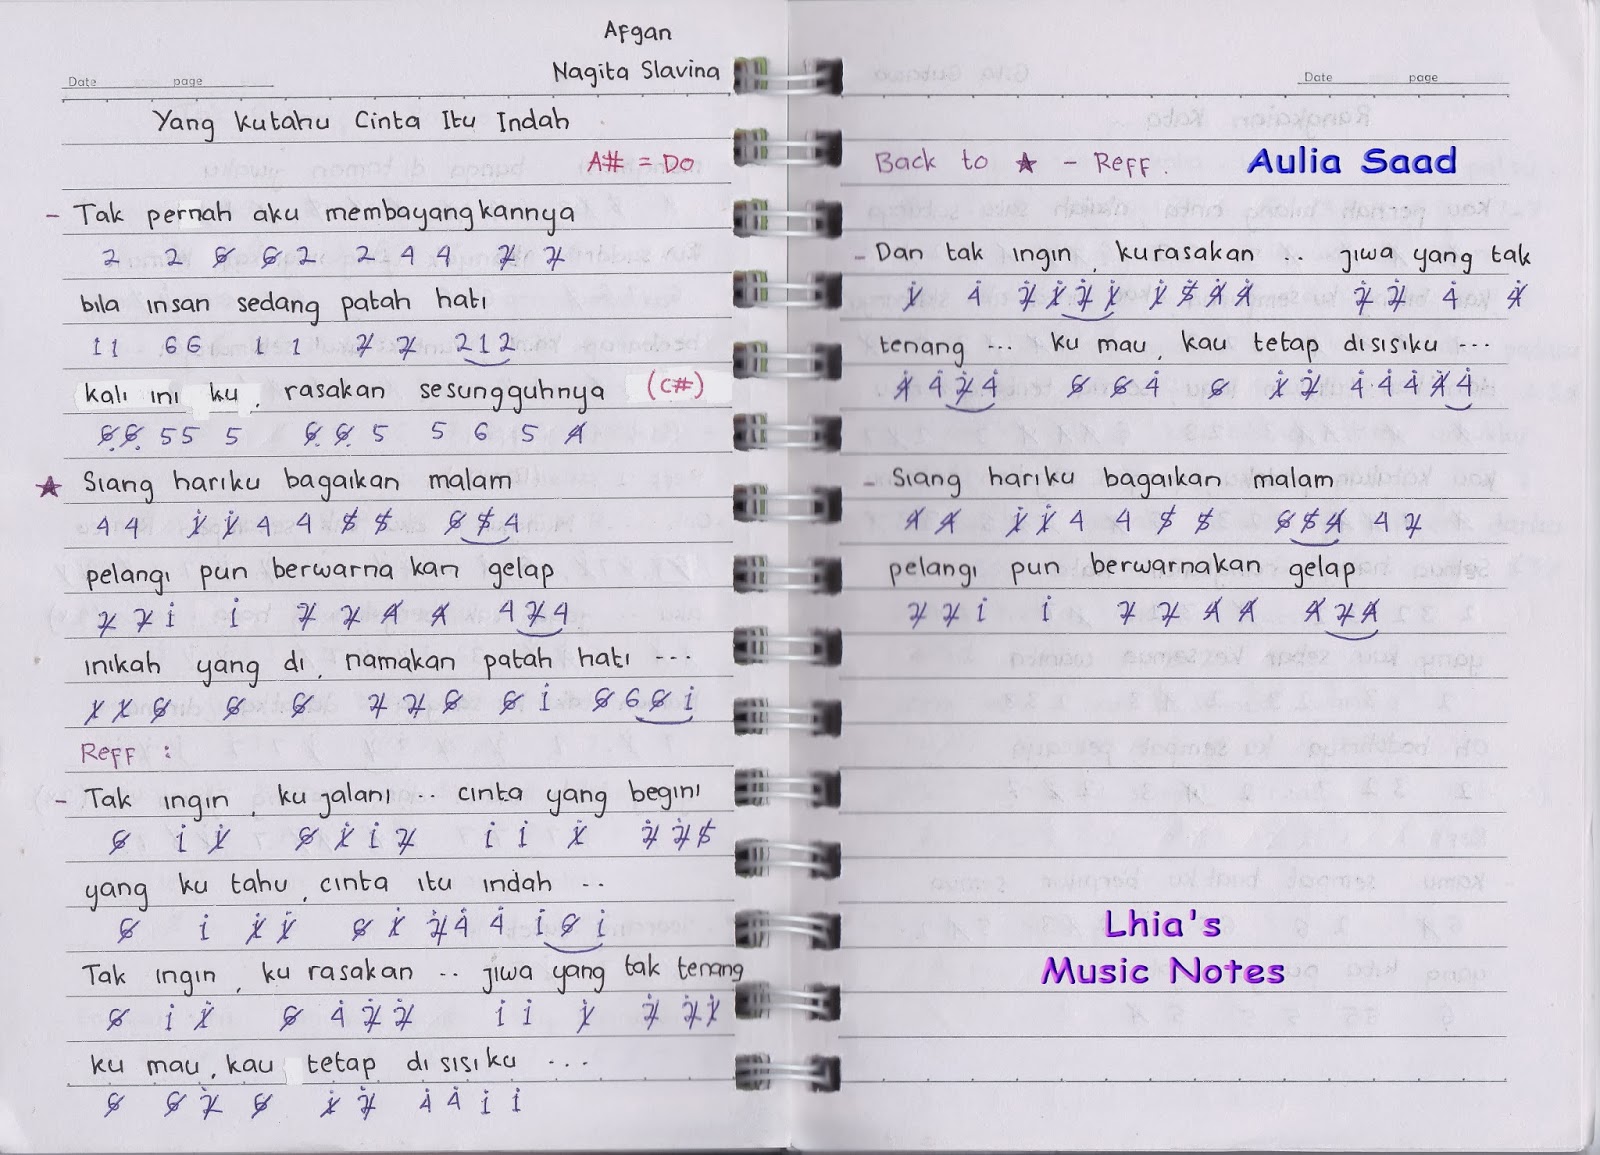 Afgan
Nagita Slavina
Date page
Yang Kutahu Cinta Itu Indah
A# = Do
- Tak pernah aku membayangkannya
2 2 6 6 2 2 4 4 2 2
bila insan sedang patah hati
11 66 1 1 2 2 212
kali ini ku, rasakan sesungguhnya (C#)
66 55 5 6 6 5 5 6 5 4
★ Siang hariku bagaikan malam
44 11 4 4 5 5 654
pelangi pun berwarna kan gelap
2 2 1 1 2 2 4 4 424
inikah yang di, namakan patah hati ...
1 1 6 6 6 2 2 6 6 1 6 6 6 1
Reff :
- Tak ingin, ku jalani .. cinta yang begini
6 1 1 6 1 1 2 1 1 1 2 2 5
yang ku tahu, cinta itu indah ..
6 1 1 1 6 1 2 4 4 1 6 1
Tak ingin, ku rasakan .. jiwa yang tak tenang
6 1 1 6 4 2 2 1 1 1 2 2 1
ku mau, kau tetap disisiku ...
6 6 2 6 1 2 4 4 1 1
Date page
Back to ★ - Reff.
Aulia Saad
- Dan tak ingin, kurasakan .. jiwa yang tak
1 4 2 1 2 1 1 5 4 4 2 2 4 4
tenang ... ku mau, kau tetap disisiku ...
4 4 2 4 6 6 4 6 1 2 4 4 4 4 4
- Siang hariku bagaikan malam
4 4 1 1 4 4 5 5 6 5 4 4 2
pelangi pun berwarnakan gelap
2 2 1 1 2 2 4 4 4 2 4
Lhia's
Music Notes